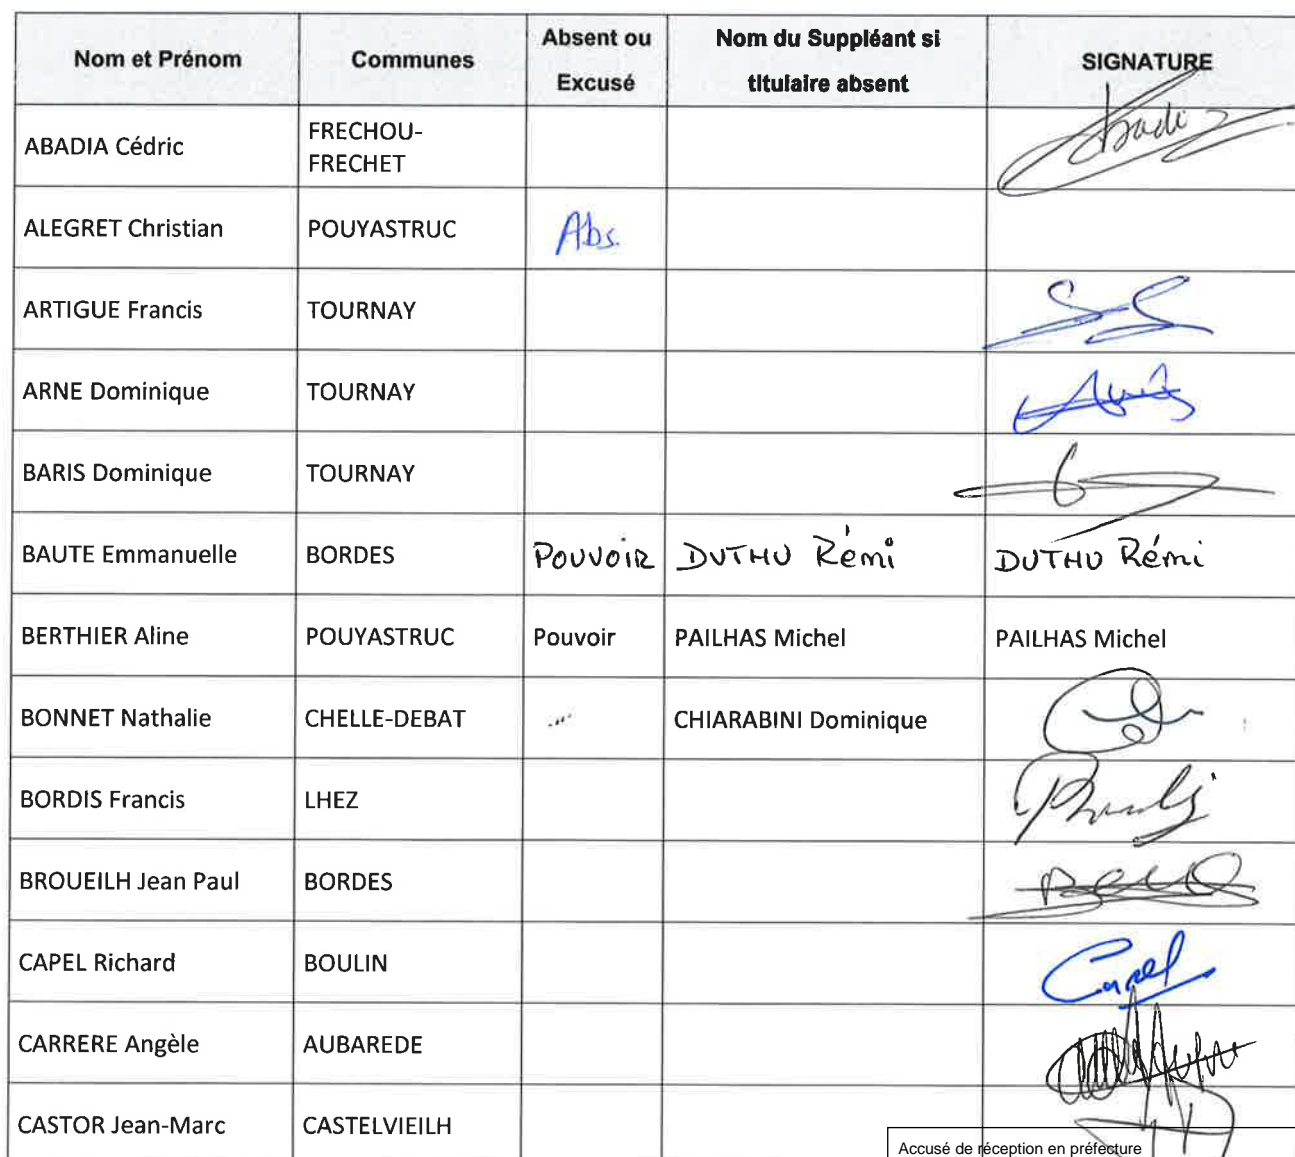 Nom et Prénom Communes Absent ou Excusé Nom du Suppléant si titulaire absent SIGNATURE
ABADIA Cédric FRECHOU-FRECHET
ALEGRET Christian POUYASTRUC Abs.
ARTIGUE Francis TOURNAY
ARNE Dominique TOURNAY
BARIS Dominique TOURNAY
BAUTE Emmanuelle BORDES POUVOIR DUTHU Rémi DUTHU Rémi
BERTHIER Aline POUYASTRUC Pouvoir PAILHAS Michel PAILHAS Michel
BONNET Nathalie CHELLE-DEBAT CHIARABINI Dominique
BORDIS Francis LHEZ
BROUEILH Jean Paul BORDES
CAPEL Richard BOULIN Capel
CARRERE Angèle AUBAREDE
CASTOR Jean-Marc CASTELVIEILH
Accusé de réception en préfecture